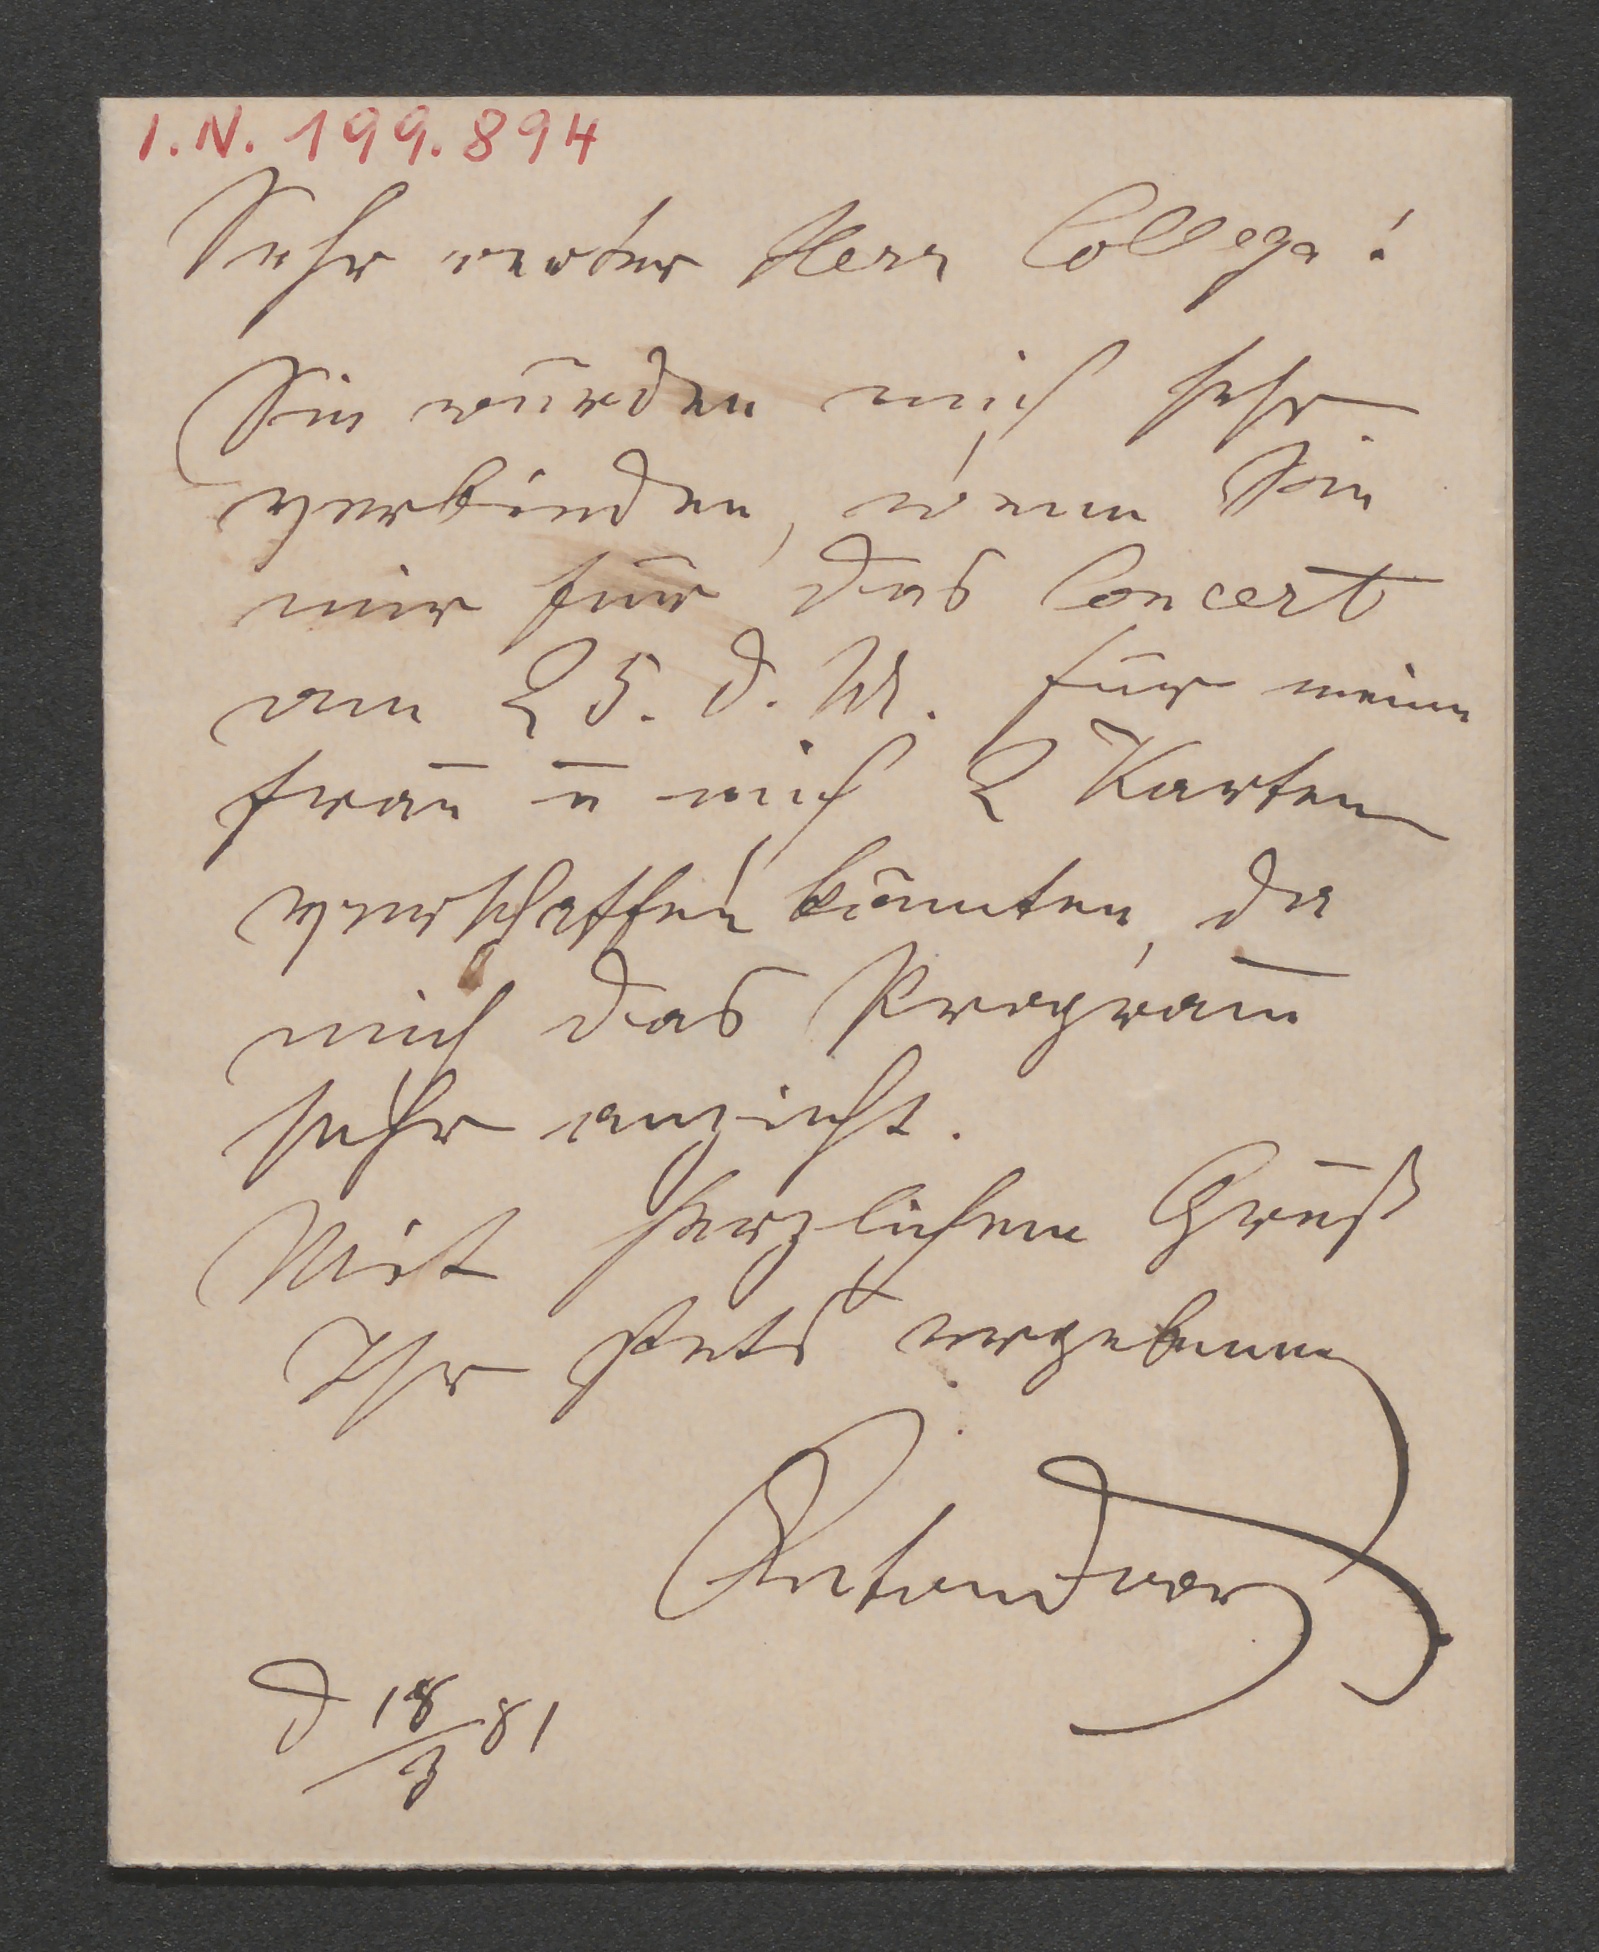 I.N. 199.894
Sehr werter Herr Collega!
Sie würden mich sehr
verbinden, wenn Sie
mir für das Concert
am 25. d. M. für meine
Frau u mich 2 Karten
verschaffen könnten, da
mich das Program̅
sehr anzieht.
Mit herzlichem Gruß
Ihr stets ergebener
d 18/3 81